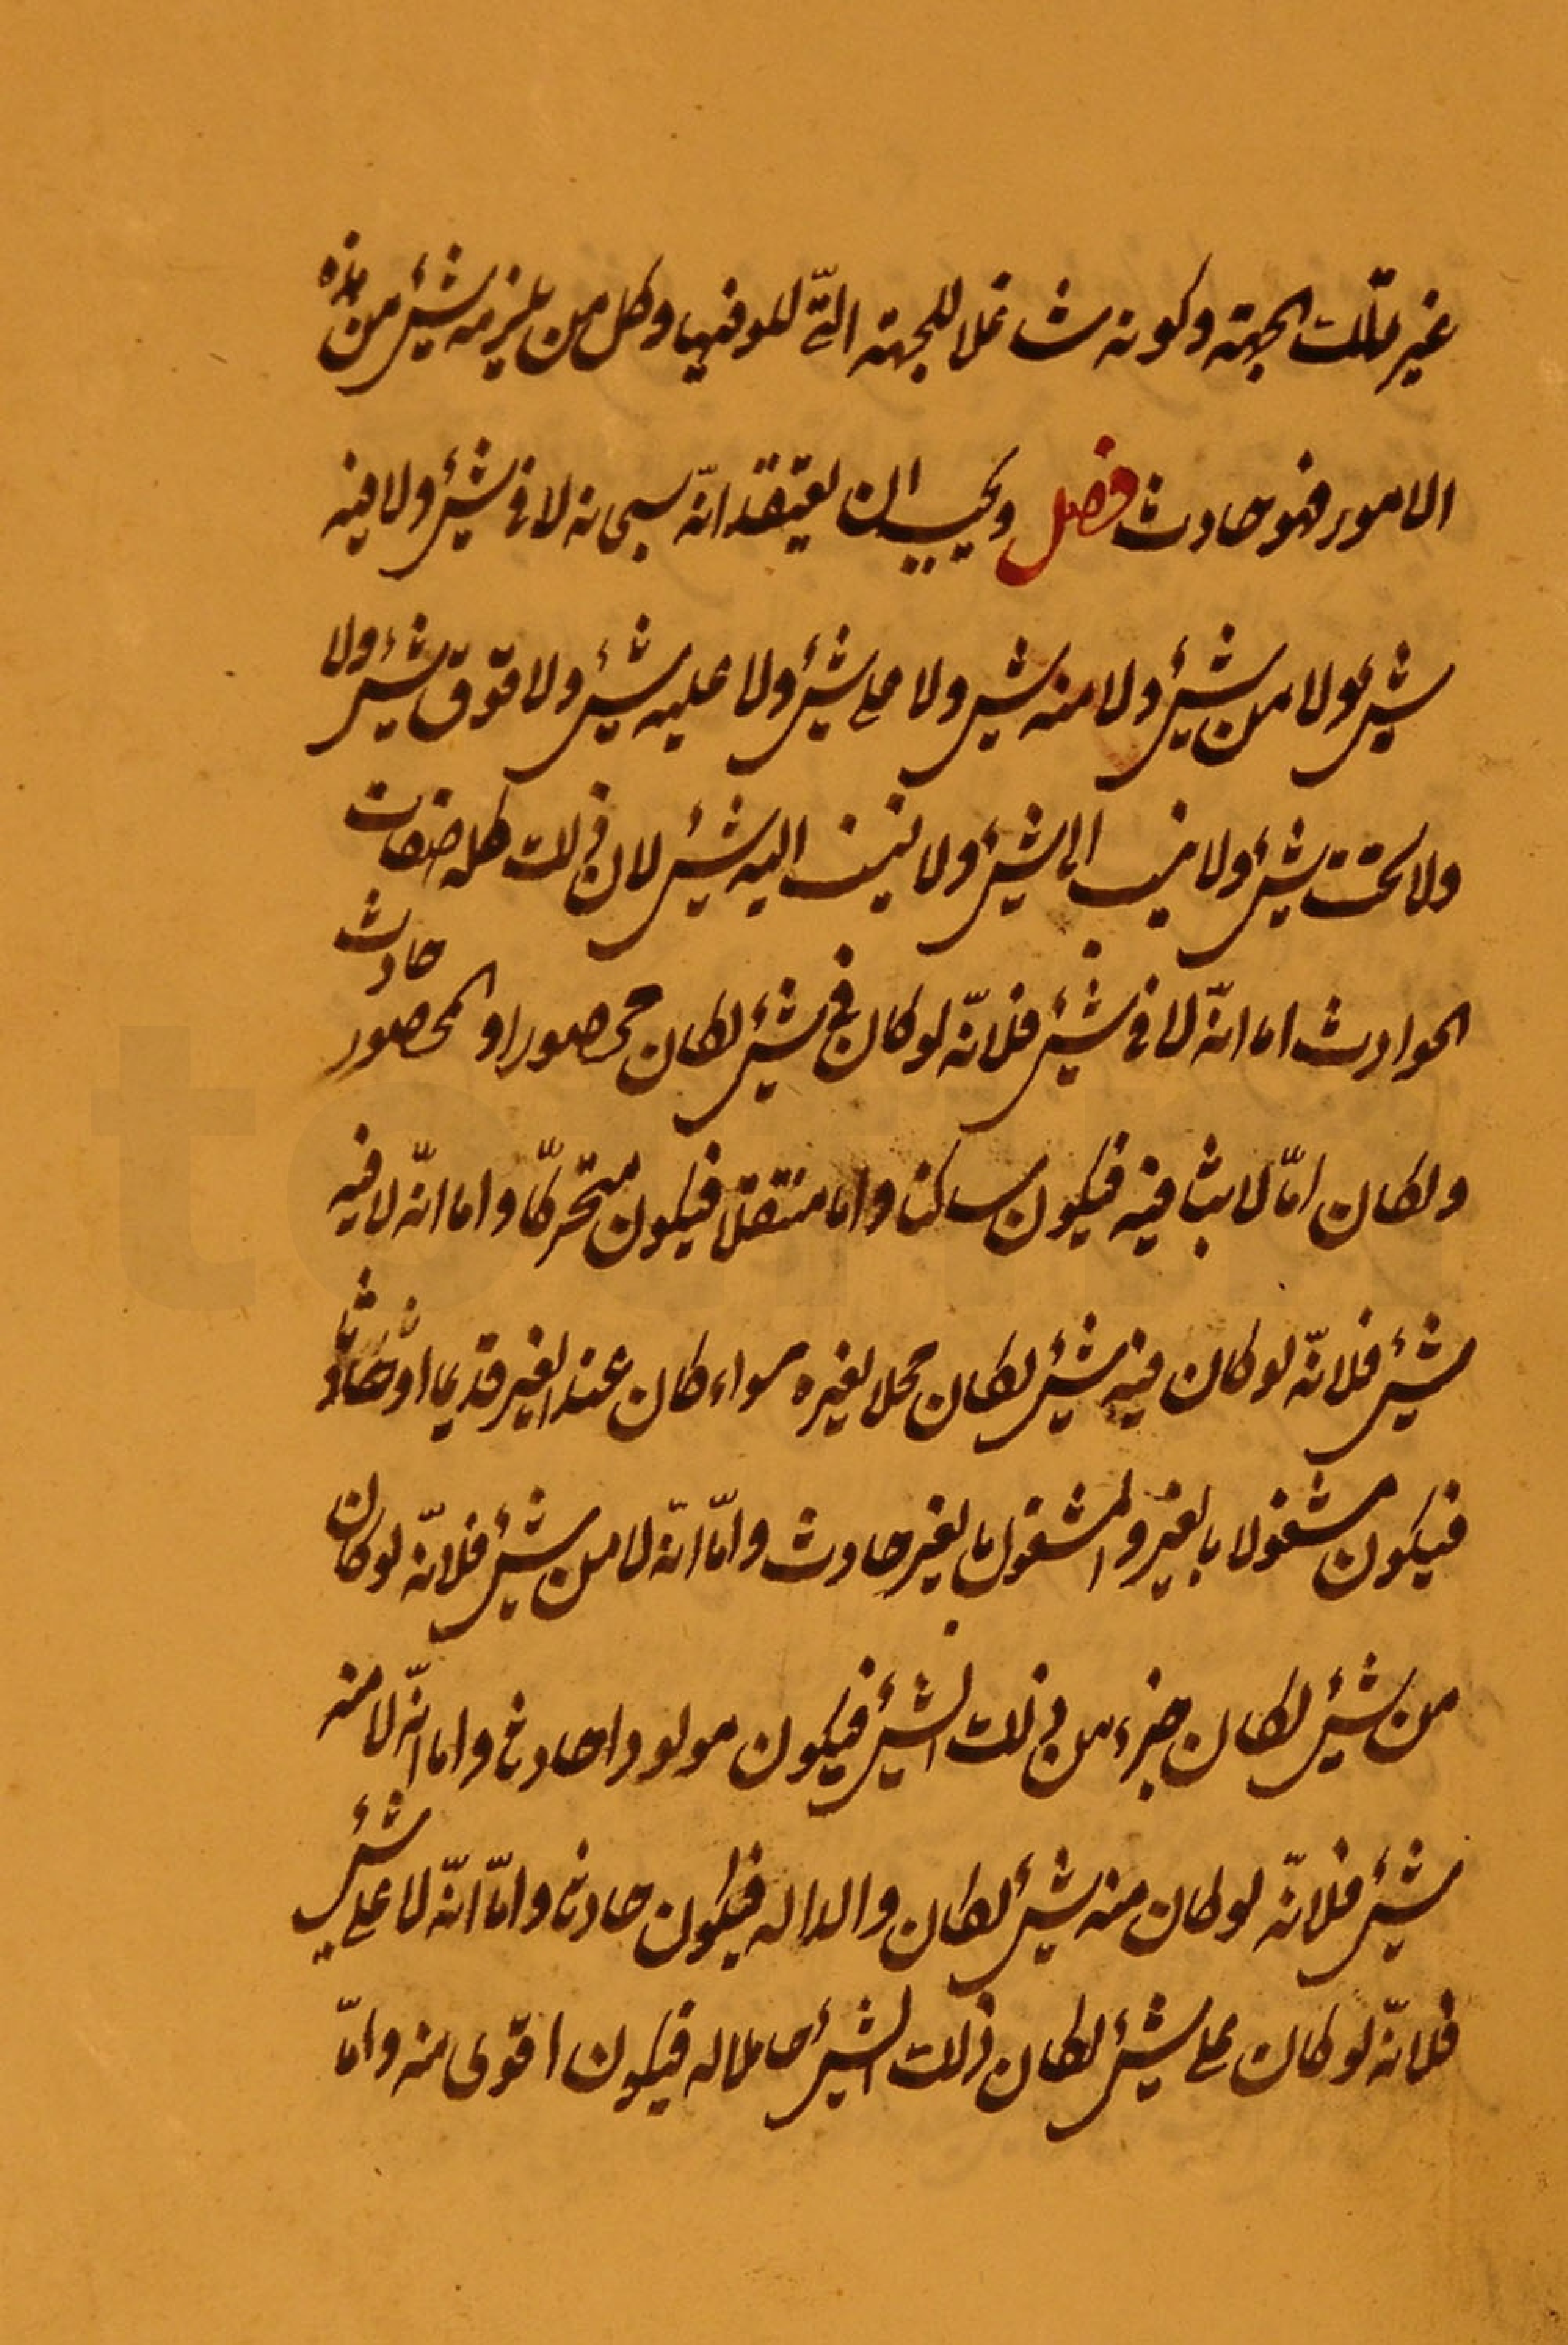 غير تلك الجهة وكونه شاغلا للجهة التّى للو فيها وكل من يلزمه شئ من هذه
الامور فهو حادث فصل ويجب ان يعتقد انّه سبحانه لا فى شئ ولا فيه
شئ ولا من شئ ولا منه شئ ولا على شئ ولا عليه شئ ولا فوق شئ ولا
ولا تحت شئ ولا ينسب الى شئ ولا ينسب اليه شئ لان ذلك كله صفات
الحوادث اما انّه لا فى شئ فلانّه لو كان فى شئ لكان محصورا والمحصور حادث
ولكان امّا لابثا فيه فيكون ساكنا واما منتقلا فيكون متحركّا واما انّه لا فيه
شئ فلانّه لو كان فيه شئ لكان محلا لغيره سواء كان عند الغير قديما او حادثا
فيكون مشغولا بالغير والمشغول بالغير حادث وامّا انّه لا من شئ فلانّه لو كان
من شئ لكان جزء من ذلك الشئ فيكون مولودا حادثا واما انّه لا منه
شئ فلانّه لو كان منه شئ لكان والدا له فيكون حادثا وامّا انّه لا على شئ
فلانّه لو كان على شئ لكان ذلك الشئ حاملا له فيكون اقوى منه وامّا